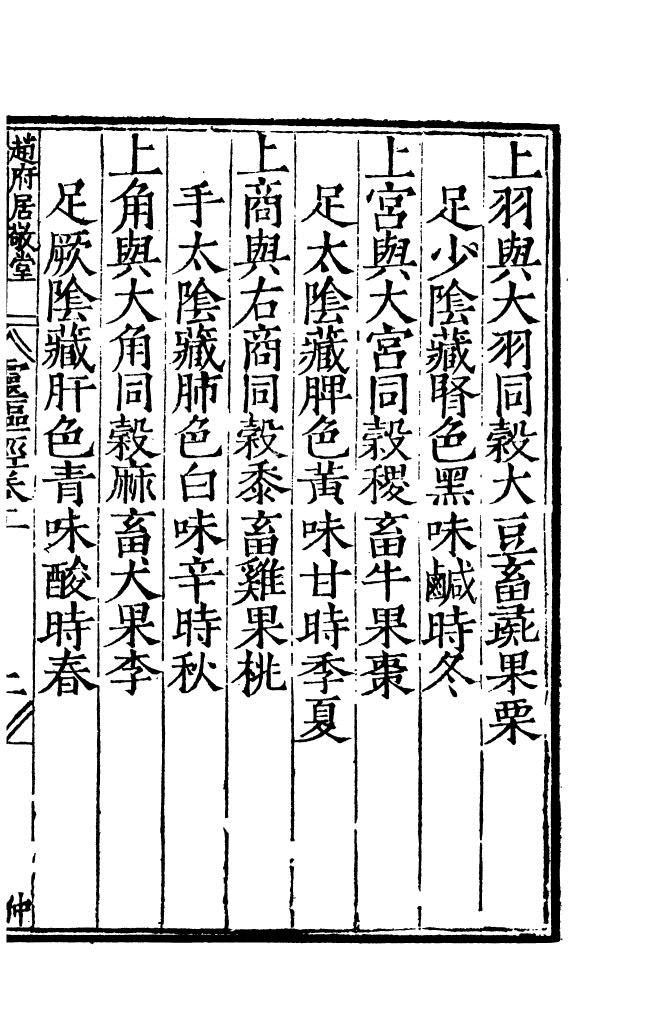 上羽與大羽同穀大豆畜彘果栗
足少陰藏腎色黑味鹹時冬
上宮與大宮同穀稷畜牛果棗
足太陰藏脾色黃味甘時季夏
上商與右商同穀黍畜雞果桃
手太陰藏肺色白味辛時秋
上角與大角同穀麻畜犬果李
足厥陰藏肝色青味酸時春
趙府居敬堂
靈樞經卷二
二
仲